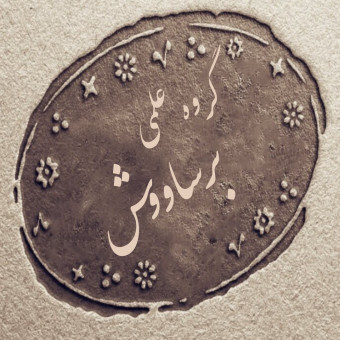 گروه علمی
برساووش